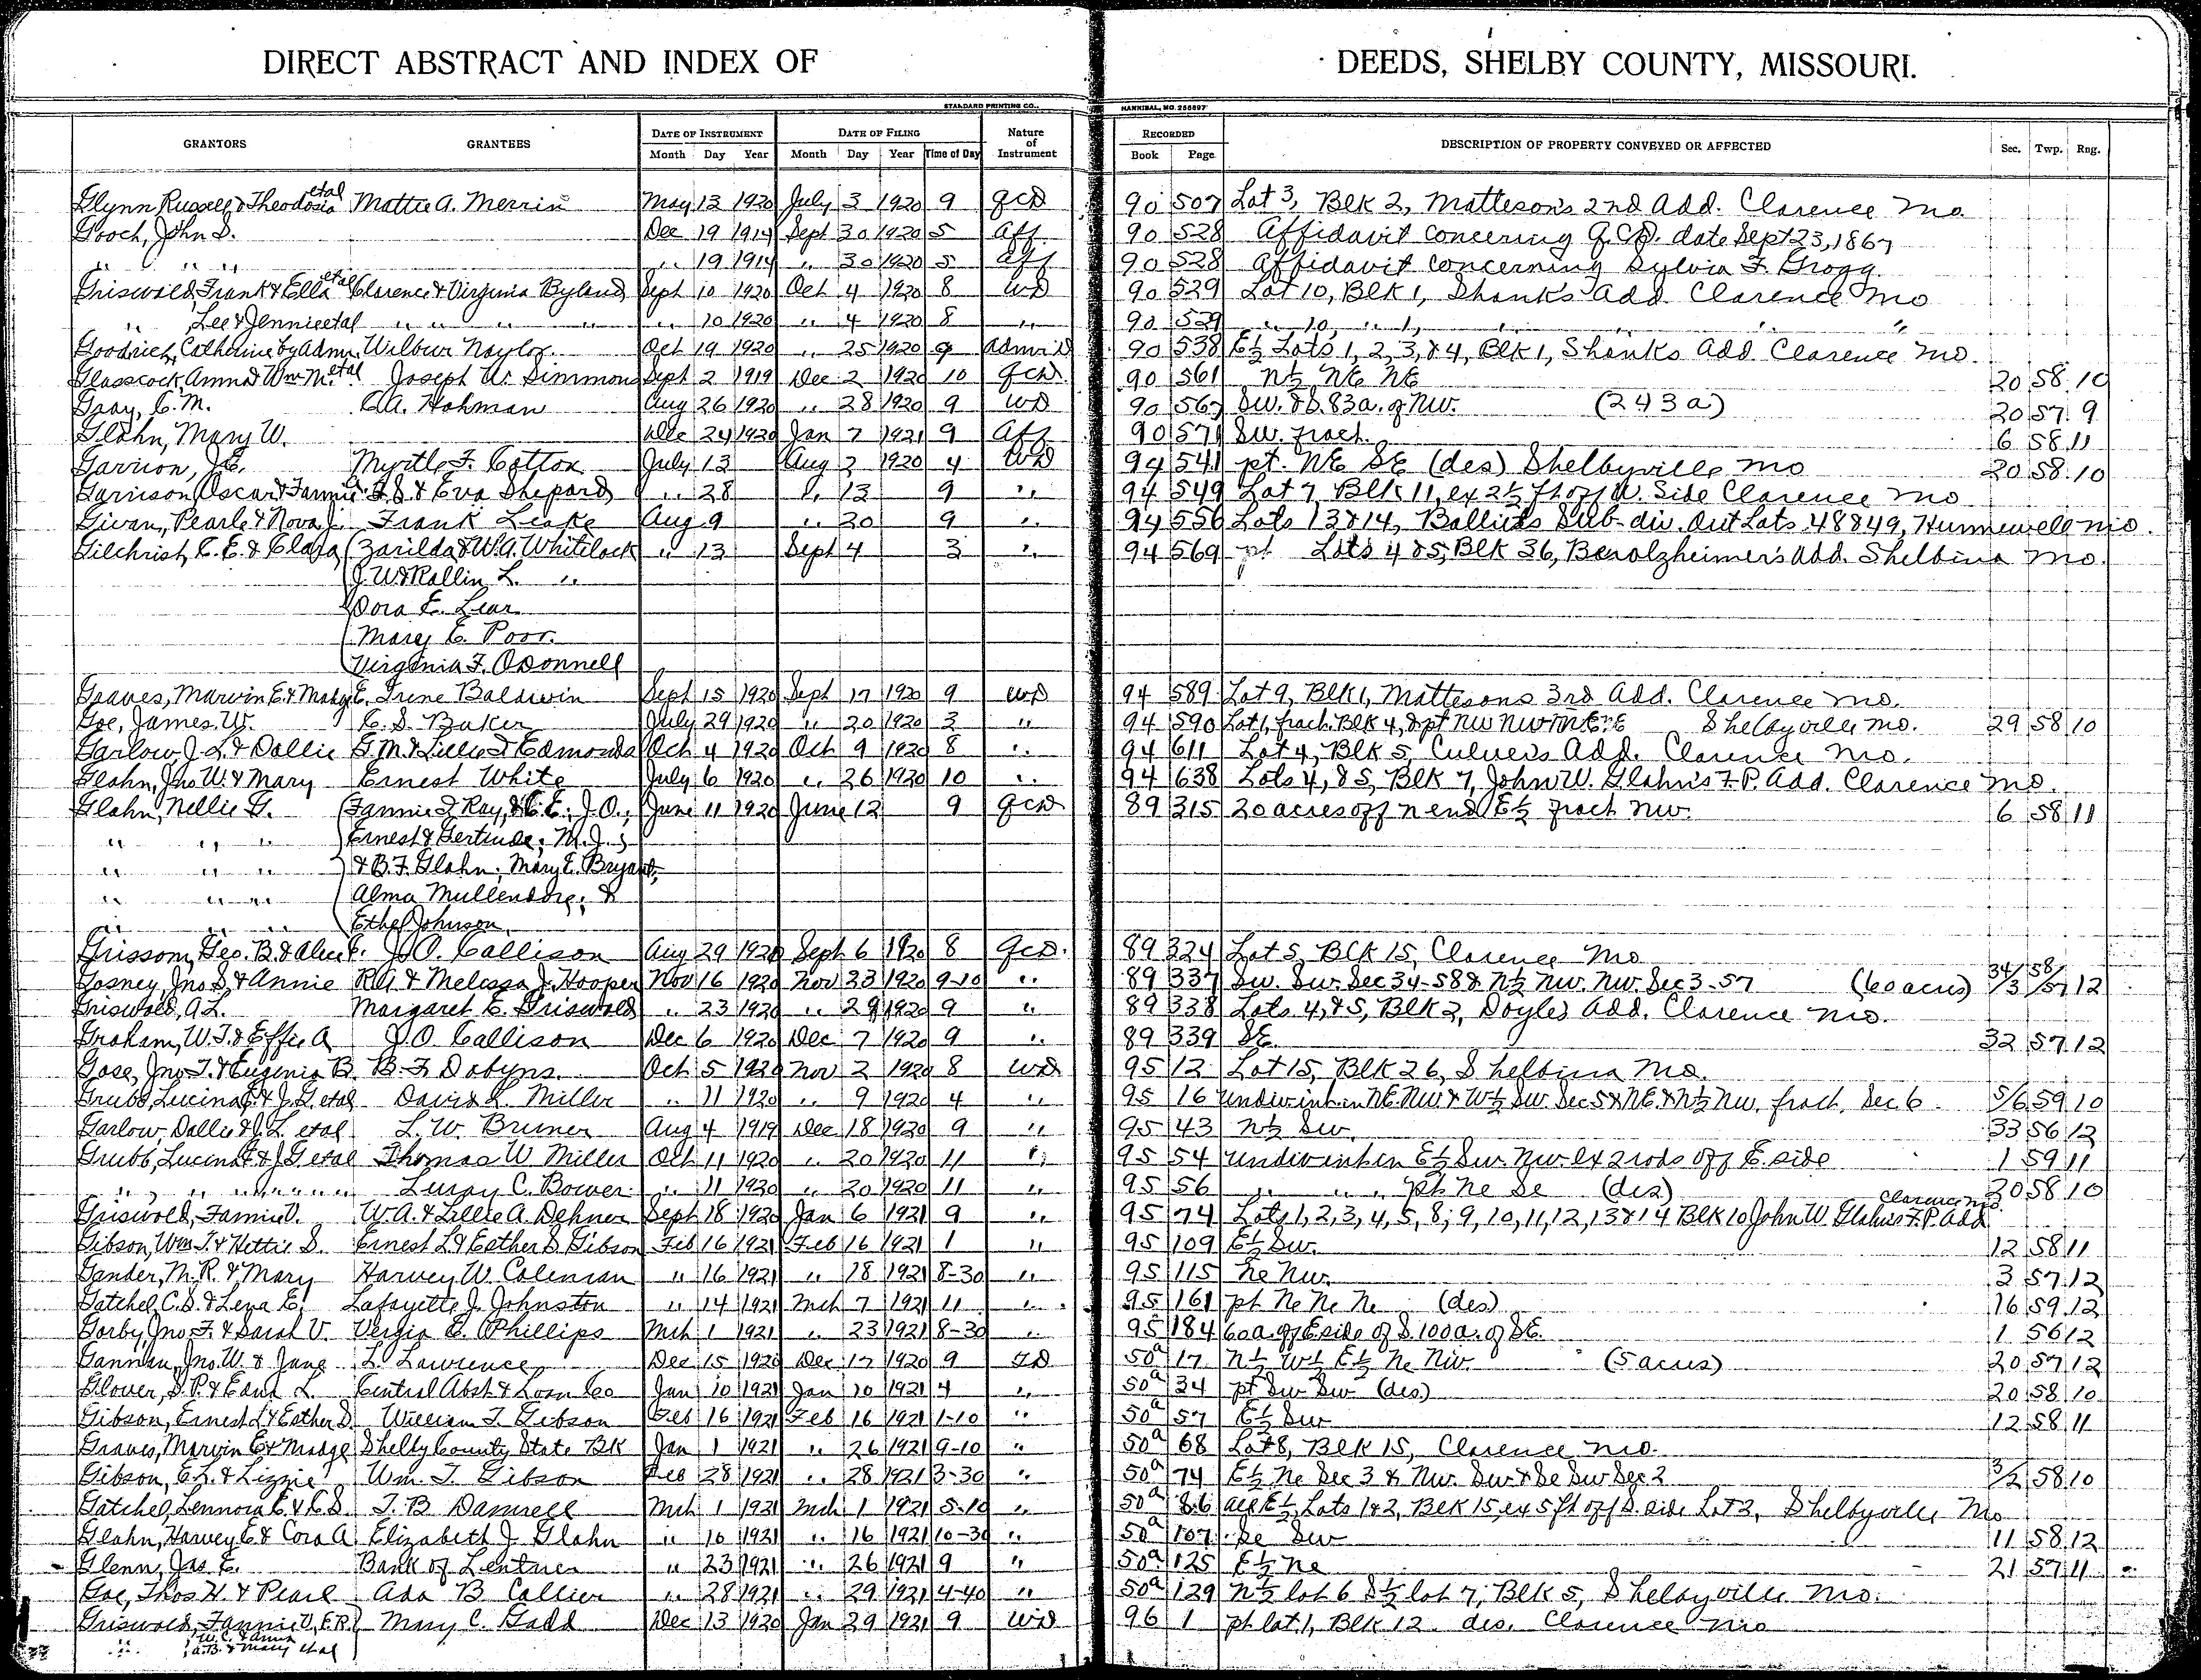 DIRECT ABSTRACT AND INDEX OF DEEDS, SHELBY COUNTY, MISSOURI.
STANDARD PRINTING CO., HANNIBAL, MO. 256897
GRANTORS GRANTEES DATE OF INSTRUMENT DATE OF FILING Nature of Instrument RECORDED DESCRIPTION OF PROPERTY CONVEYED OR AFFECTED Sec. Twp. Rng.
Month Day Year Month Day Year Time of Day Book Page
Glynn Russell & Theodosia etal Mattie A. Merrin May 13 1920 July 3 1920 9 QCD 90 507 Lot 3, Blk 2, Matteson's 2nd Add. Clarence Mo.
Gooch, John S. Dec 19 1914 Sept 30 1920 5 Aff. 90 528 Affidavit Concering Q.C.D. date Sept 23, 1867
" " " " 19 1914 " 30 1920 5 Aff 90 528 Affidavit Concerning Sylvia F. Grogg.
Griswold, Frank & Ella etal Clarence & Virginia Byland Sept 10 1920 Oct 4 1920 8 WD 90 529 Lot 10, Blk 1, Shanks Add Clarence Mo
" Lee & Jennie etal " " " " " 10 1920 " 4 1920 8 " 90 529 " 10, " 1, " " "
Goodrich, Catherine by Admr. Wilbur Naylor Oct 19 1920 " 25 1920 9 Adm'r D 90 538 E½ Lots 1, 2, 3, & 4, Blk 1, Shanks Add Clarence Mo.
Glasscock, Anna & Wm M. etal Joseph W. Simmons Sept 2 1919 Dec 2 1920 10 QCD. 90 561 N½ NE NE 20 58 10
Gray, C. M. C. A. Hohman Aug 26 1920 " 28 1920 9 WD 90 567 SW. & S. 83a. of NW. (243 a) 20 57 9
Glahn, Mary W. Dec 24 1920 Jan 7 1921 9 Aff 90 571 SW. fract. 6 58 11
Garrison, J.E. Myrtle F. Cotton July 13 Aug 2 1920 4 WD 94 541 pt. NE SE (des) Shelbyville Mo 20 58 10
Garrison, Oscar & Fannie & Eva Shepard " 28 " 13 9 " 94 549 Lot 7, Blk 11, ex 2½ ft off W. Side Clarence Mo
Givan, Pearle & Nova J. Frank Leake Aug 9 " 20 9 " 94 556 Lots 13 & 14, Sub-div. Out Lots 48 & 49, Hunnewell Mo.
Gilchrist, C. E. & Clara (Zarilda & W. A. Whitelock " 13 Sept 4 3 " 94 569 pt Lots 4 & 5, Blk 36, Benolzheimer's Add. Shelbina Mo.
(J. W & Rollin L. "
(Dora E. Lear
(Mary E. Poor.
(Virginia F. O'Donnell
Graves, Marvin E. & Madge E. Irene Baldwin Sept 15 1920 Sept 17 1920 9 WD 94 589 Lot 9, Blk 1, Mattesons 3rd Add. Clarence Mo.
Goe, James W. C. S. Baker July 29 1920 " 20 1920 3 " 94 590 Lot 1, fract. Blk 4, & pt NW NW Shelbyville Mo. 29 58 10
Garlow, J. L. & Dollie G. M. & Lillie I Edmonds Oct 4 1920 Oct 9 1920 8 " 94 611 Lot 4, Blk 5, Culvers Add. Clarence Mo.
Glahn, Jno W. & Mary Ernest White July 6 1920 " 26 1920 10 " 94 638 Lots 4, & 5, Blk 7, John W. Glahn's F. P. Add. Clarence Mo.
Glahn, Nellie G. (Fannie F. Ray, & C. E.; J. O.; June 11 1920 June 12 9 QCD 89 315 20 acres off N end E½ fract NW. 6 58 11
" " " Ernest & Gertrude; M. J.;
" " " & B. F. Glahn; Mary E. Bryant;
" " " Alma Mullendore; &
" " " Ethel Johnson.
Grissom, Geo. B. & Alice J. O. Callison Aug 29 1920 Sept 6 1920 8 QCD. 89 324 Lot 5, Blk 15, Clarence Mo
Gosney, Jno S. & Annie R. A. & Melissa J. Hooper Nov 16 1920 Nov 23 1920 9-10 " 89 337 SW. SW. Sec 34-58 & N½ NW. NW. Sec 3-57 (60 acres) 34/3 58/57 12
Griswold, A. L. Margaret E. Griswold " 23 1920 " 29 1920 9 " 89 338 Lots 4, & 5, Blk 2, Doyles Add. Clarence Mo.
Graham, W. T. & Effie A J. O. Callison Dec 6 1920 Dec 7 1920 9 " 89 339 SE. 32 57 12
Gose, Jno T. & Eugenia B. B. F. Dobyns. Oct 5 1920 Nov 2 1920 8 WD 95 12 Lot 15, Blk 26, Shelbina Mo.
Grubb, Lucina F. & J. G. etal David L. Miller " 11 1920 " 9 1920 4 " 95 16 undiv int in NE. NW & W½ SW. Sec 5 & NE. & N½ NW. fract. Sec 6 5/6 59 10
Garlow, Dollie & J. L. etal L. W. Bruner Aug 4 1919 Dec 18 1920 9 " 95 43 N½ SW. 33 56 12
Grubb, Lucina F. & J. G. etal Thomas W Miller Oct 11 1920 " 20 1920 11 " 95 54 undiv int in E½ SW. NW. ex 2 rods off E. side 1 59 11
" " " " " Leroy C. Bower " 11 1920 " 20 1920 11 " 95 56 " " " pt NE SE (des) 20 58 10
Griswold, Fannie V. W. A. & Lillie A. Dehner Sept 18 1920 Jan 6 1921 9 " 95 74 Lots 1, 2, 3, 4, 5, 8, 9, 10, 11, 12, 13 & 14 Blk 10 John W. Glahn's F. P. Add Clarence Mo
Gibson, Wm T. & Hettie S. Ernest L. & Esther S. Gibson Feb 16 1921 Feb 16 1921 1 " 95 109 E½ SW. 12 58 11
Gander, M. R. & Mary Harvey W. Coleman " 16 1921 " 18 1921 8-30 " 95 115 NE NW. 3 57 12
Gatchel, C. S. & Lena E. Lafayette J. Johnston " 14 1921 Mch 7 1921 11 " 95 161 pt NE NE NE (des) 16 59 12
Gorby, Jno. F. & Sarah V. Vergie E. Phillips Mch 1 1921 " 23 1921 8-30 " 95 184 60a. off E side of S. 100a. of SE. 1 56 12
Jno. W. & Jane L. Lawrence Dec 15 1920 Dec 17 1920 9 TD 50a 17 N½ W½ E½ NE NW. (5 acres) 20 57 12
Glover, S. P. & Edna L. Central Abst & Loan Co Jan 10 1921 Jan 10 1921 4 " 50a 34 pt SW SW (des) 20 58 10
Gibson, Ernest L. & Esther S. William T. Gibson Feb 16 1921 Feb 16 1921 1-10 " 50a 57 E½ SW 12 58 11
Graves, Marvin E. & Madge Shelby County State Bk Jan 1 1921 " 26 1921 9-10 " 50a 68 Lot 8, Blk 15, Clarence Mo.
Gibson, E. L. & Lizzie Wm. T. Gibson Feb 28 1921 " 28 1921 3-30 " 50a 74 E½ NE Sec 3 & NW. SW. & SE SW Sec 2 3/2 58 10
Gatchel, Lennora E. & C. S. T. B. Damrell Mch 1 1921 Mch 1 1921 5-10 " 50a 86 all E½ Lots 1 & 2, Blk 15, ex 5 ft off S. side Lot 2, Shelbyville, Mo
Glahn, Harvey E. & Cora A. Elizabeth J. Glahn " 10 1921 " 16 1921 10-30 " 50a 107 SE SW 11 58 12
Glenn, Jas E. Bank of Lentner " 23 1921 " 26 1921 9 " 50a 125 E½ NE 21 57 11
Goe, Thos H. & Pearl Ada B Collier " 28 1921 " 29 1921 4-40 " 50a 129 N½ lot 6 S½ lot 7, Blk 5, Shelbyville Mo.
Griswold, Fannie V, E.R. Mary C. Gadd Dec 13 1920 Jan 29 1921 9 WD 96 1 pt lot 1, Blk 12 des. Clarence Mo
" W. C. & Anna
" A. B. & Mary etal